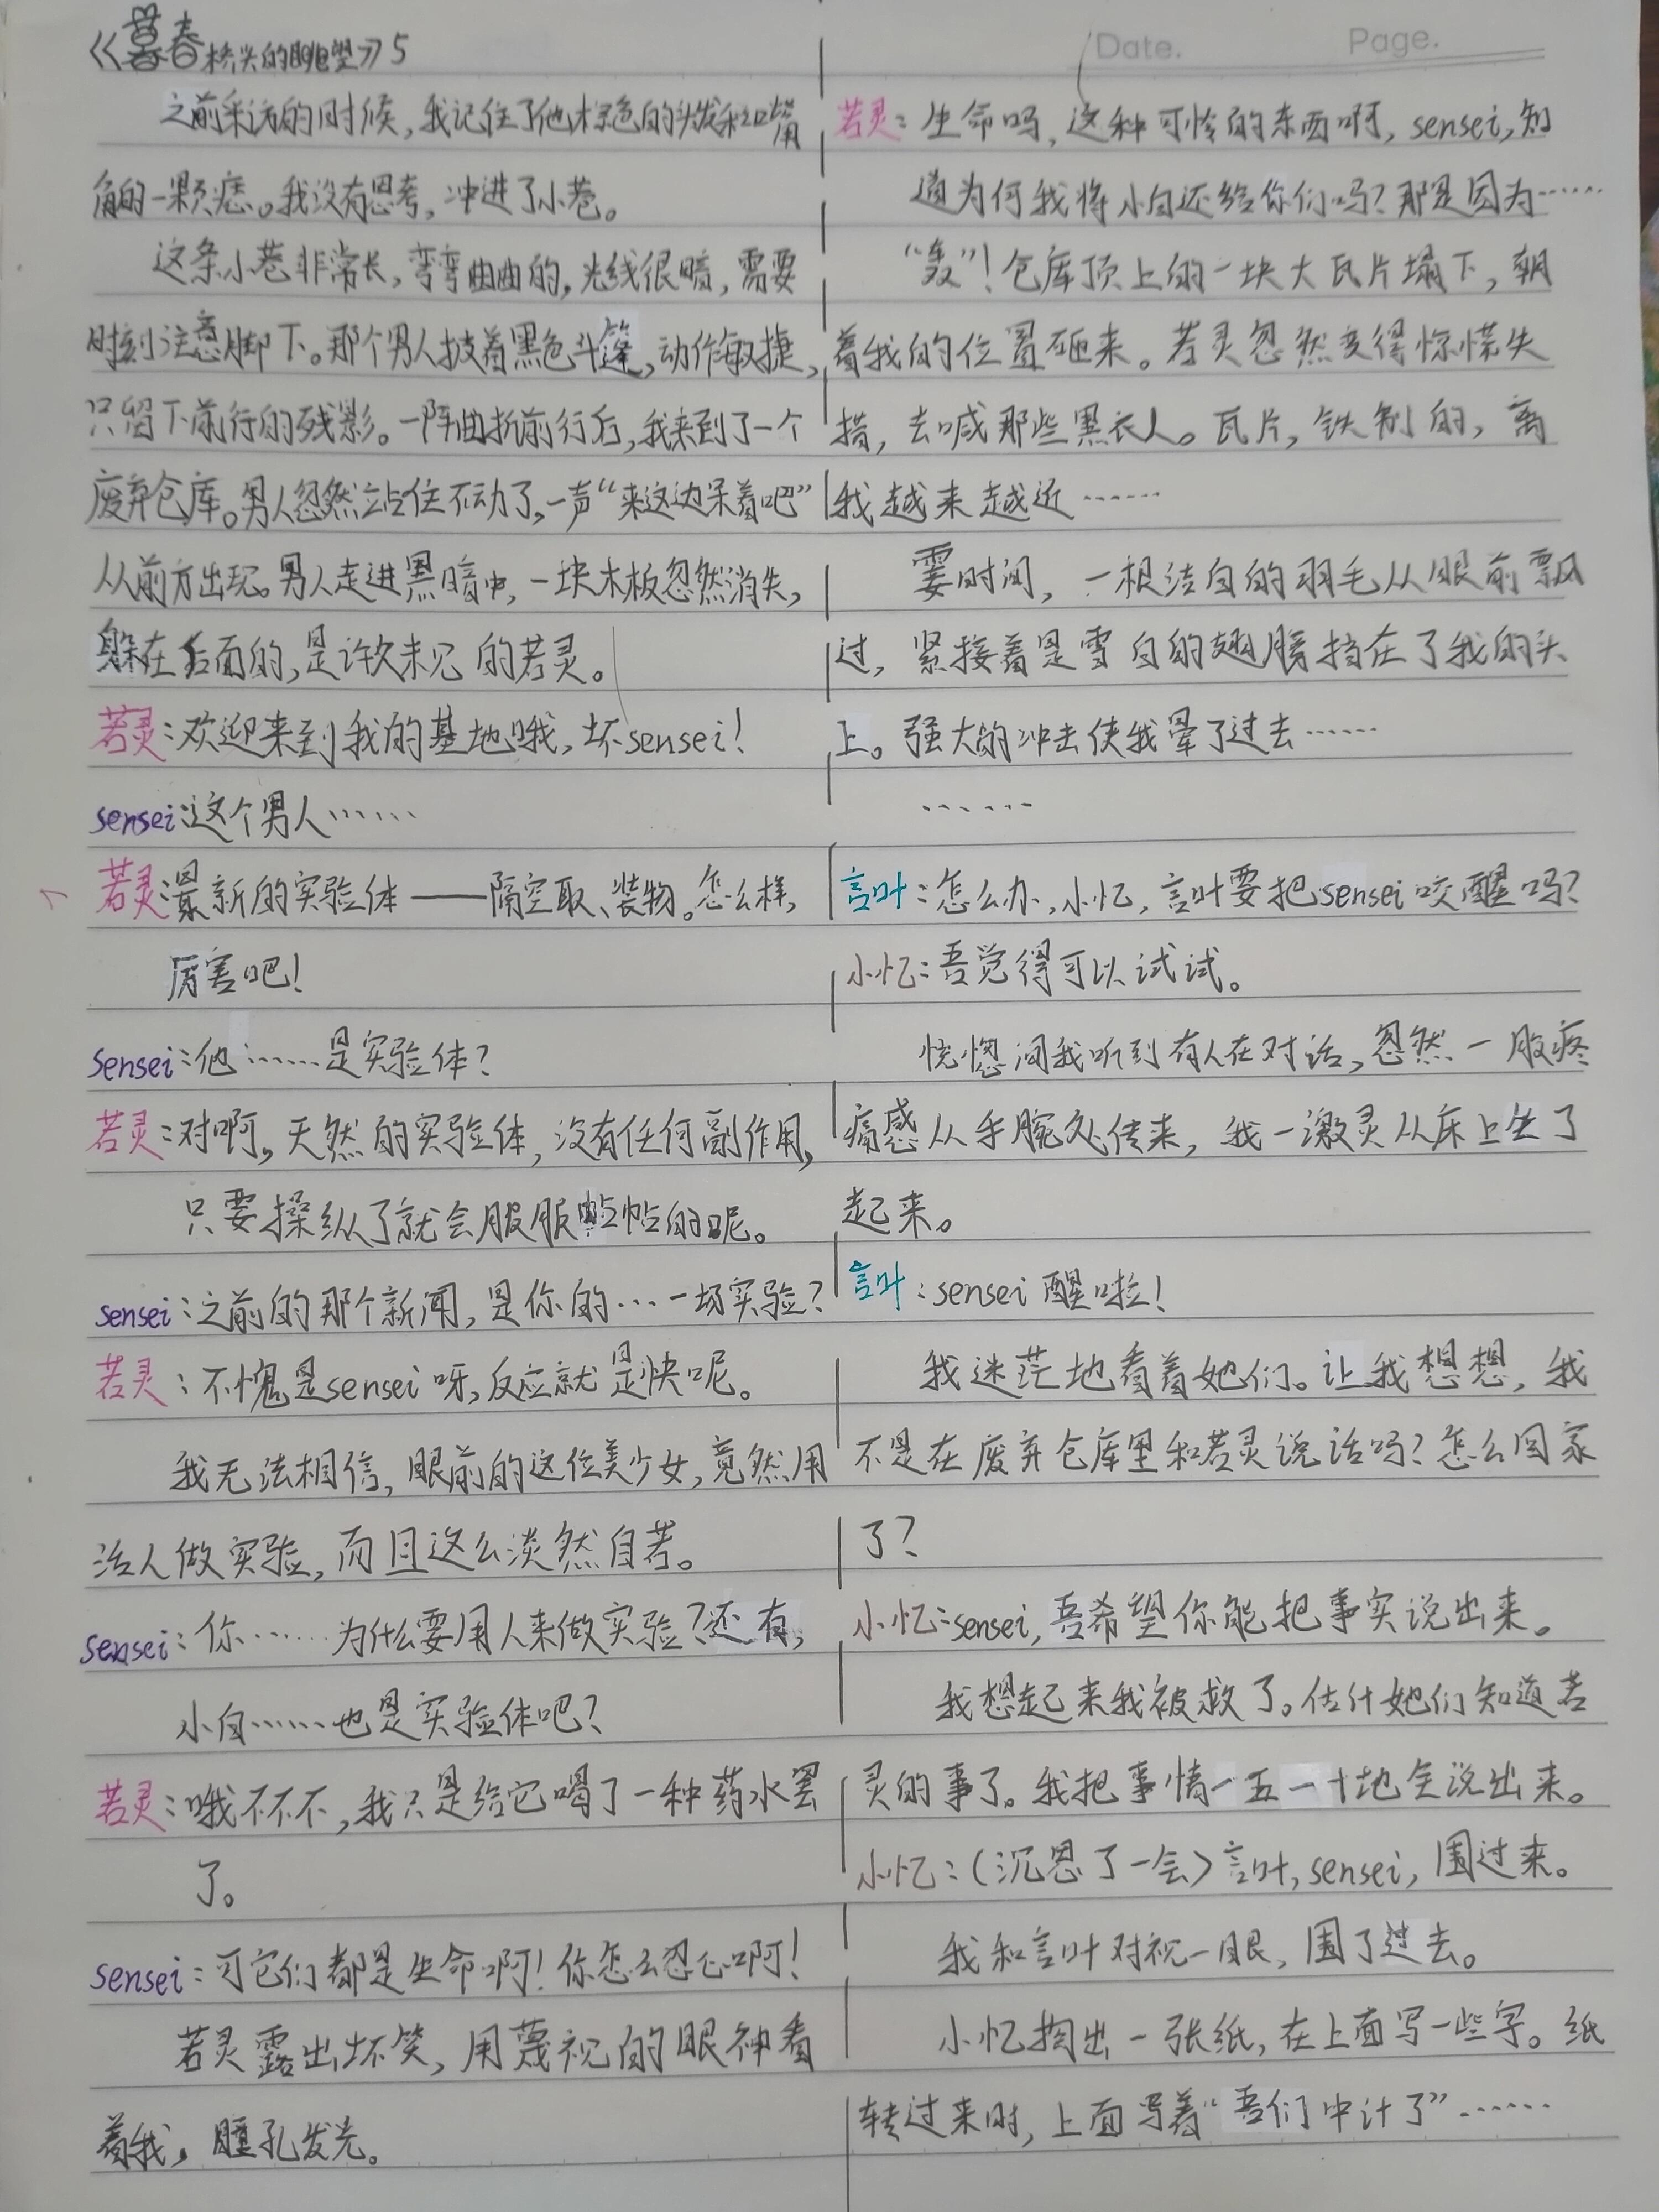 《暮春 桥头的眺望》5
之前采访的时候，我记住了他棕色的头发和嘴
角的一颗痣。我没有思考，冲进了小巷。
这条小巷非常长，弯弯曲曲的，光线很暗，需要
时刻注意脚下。那个男人披着黑色斗篷，动作敏捷，
只留下前行的残影。一阵曲折前行后，我来到了一个
废弃仓库。男人忽然站住不动了，一声“来这边呆着吧”
从前方出现。男人走进黑暗中，一块木板忽然消失，
躲在后面的，是许久未见的若灵。
若灵：欢迎来到我的基地哦，坏sensei！
sensei：这个男人……
若灵：最新的实验体——隔空取、装物。怎么样，
厉害吧！
sensei：他……是实验体？
若灵：对啊，天然的实验体，没有任何副作用，
只要操纵了就会服服帖帖的呢。
sensei：之前的那个新闻，是你的…一场实验？
若灵：不愧是sensei呀，反应就是快呢。
我无法相信，眼前的这位美少女，竟然用
活人做实验，而且这么淡然自若。
sensei：你……为什么要用人来做实验？还有，
小白……也是实验体吧？
若灵：哦不不不，我只是给它喝了一种药水罢
了。
sensei：可它们都是生命啊！你怎么忍心啊！
若灵露出坏笑，用蔑视的眼神看
着我，瞳孔发光。
Date. Page.
若灵：生命吗，这种可怜的东西啊，sensei，知
道为何我将小白还给你们吗？那是因为……
“轰”！仓库顶上的一块大瓦片塌下，朝
着我的位置砸来。若灵忽然变得惊慌失
措，去喊那些黑衣人。瓦片，铁制的，离
我越来越近……
霎时间，一根洁白的羽毛从眼前飘
过，紧接着是雪白的翅膀挡在了我的头
上。强大的冲击使我晕了过去……
……
言叶：怎么办，小忆，言叶要把sensei咬醒吗？
小忆：吾觉得可以试试。
恍惚间我听到有人在对话，忽然一股疼
痛感从手腕处传来，我一激灵从床上坐了
起来。
言叶：sensei醒啦！
我迷茫地看着她们。让我想想，我
不是在废弃仓库里和若灵说话吗？怎么回家
了？
小忆：sensei，吾希望你能把事实说出来。
我想起来我被救了。估计她们知道若
灵的事了。我把事情一五一十地全说出来。
小忆：（沉思了一会）言叶，sensei，围过来。
我和言叶对视一眼，围了过去。
小忆掏出一张纸，在上面写一些字。纸
转过来时，上面写着“吾们中计了”……